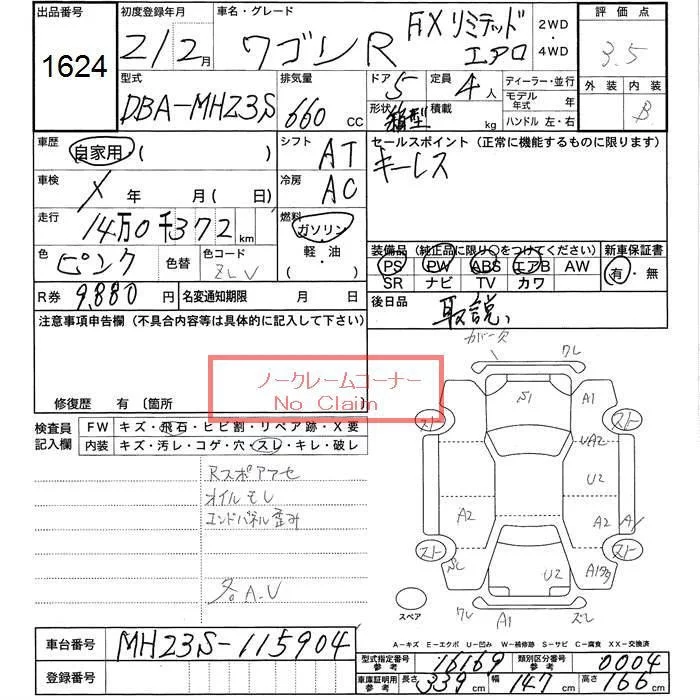 出品番号
1624
初度登録年月
21/2月
車名・グレード
ワゴンR
FXリミテッド
エアロ
2WD
・
4WD
評価点
3.5
型式
DBA-MH23S
排気量
660 CC
ドア 5
定員 4人
形状 箱型
積載 kg
ディーラー・並行
モデル年式 年
ハンドル 左・右
外装 内装
B
車歴 自家用 ( )
シフト AT
セールスポイント (正常に機能するものに限ります)
キーレス
車検 X 年 月( 日)
冷房 AC
走行 14万0千372 km
燃料 ガソリン
軽・油
( )
色 ピンク 色替
色コード ZLV
装備品 (純正品に限り○をつけてください)
PS PW ABS エアB AW
SR ナビ TV カワ
新車保証書
有・無
R券 9,880円
名変通知期限 月 日
後日品
取説
注意事項申告欄 (不具合内容等は具体的に記入して下さい)
ノークレームコーナー
No Claim
修復歴 有 (箇所 )
検査員記入欄
FW キズ・飛石・ヒビ割・リペア跡・X要
内装 キズ・汚レ・コゲ・穴・スレ・キレ・破レ
Rスポアアセ
オイルモレ
エンドパネル歪み
各A.U
カバー欠
ワレ
S1 A1
スト スト
UA2
U2
A2 A2 A1
スト スト
SC U2
スペア
ワレ A1 ズレ
A-キズ E-エクボ U-凹み W-補修跡 S-サビ C-腐食 XX-交換済
車台番号 MH23S-115904
登録番号
型式指定番号 参考 16169
類別区分番号 参考 0004
車庫証明用 参考 長さ 339 cm 幅 147 cm 高さ 166 cm